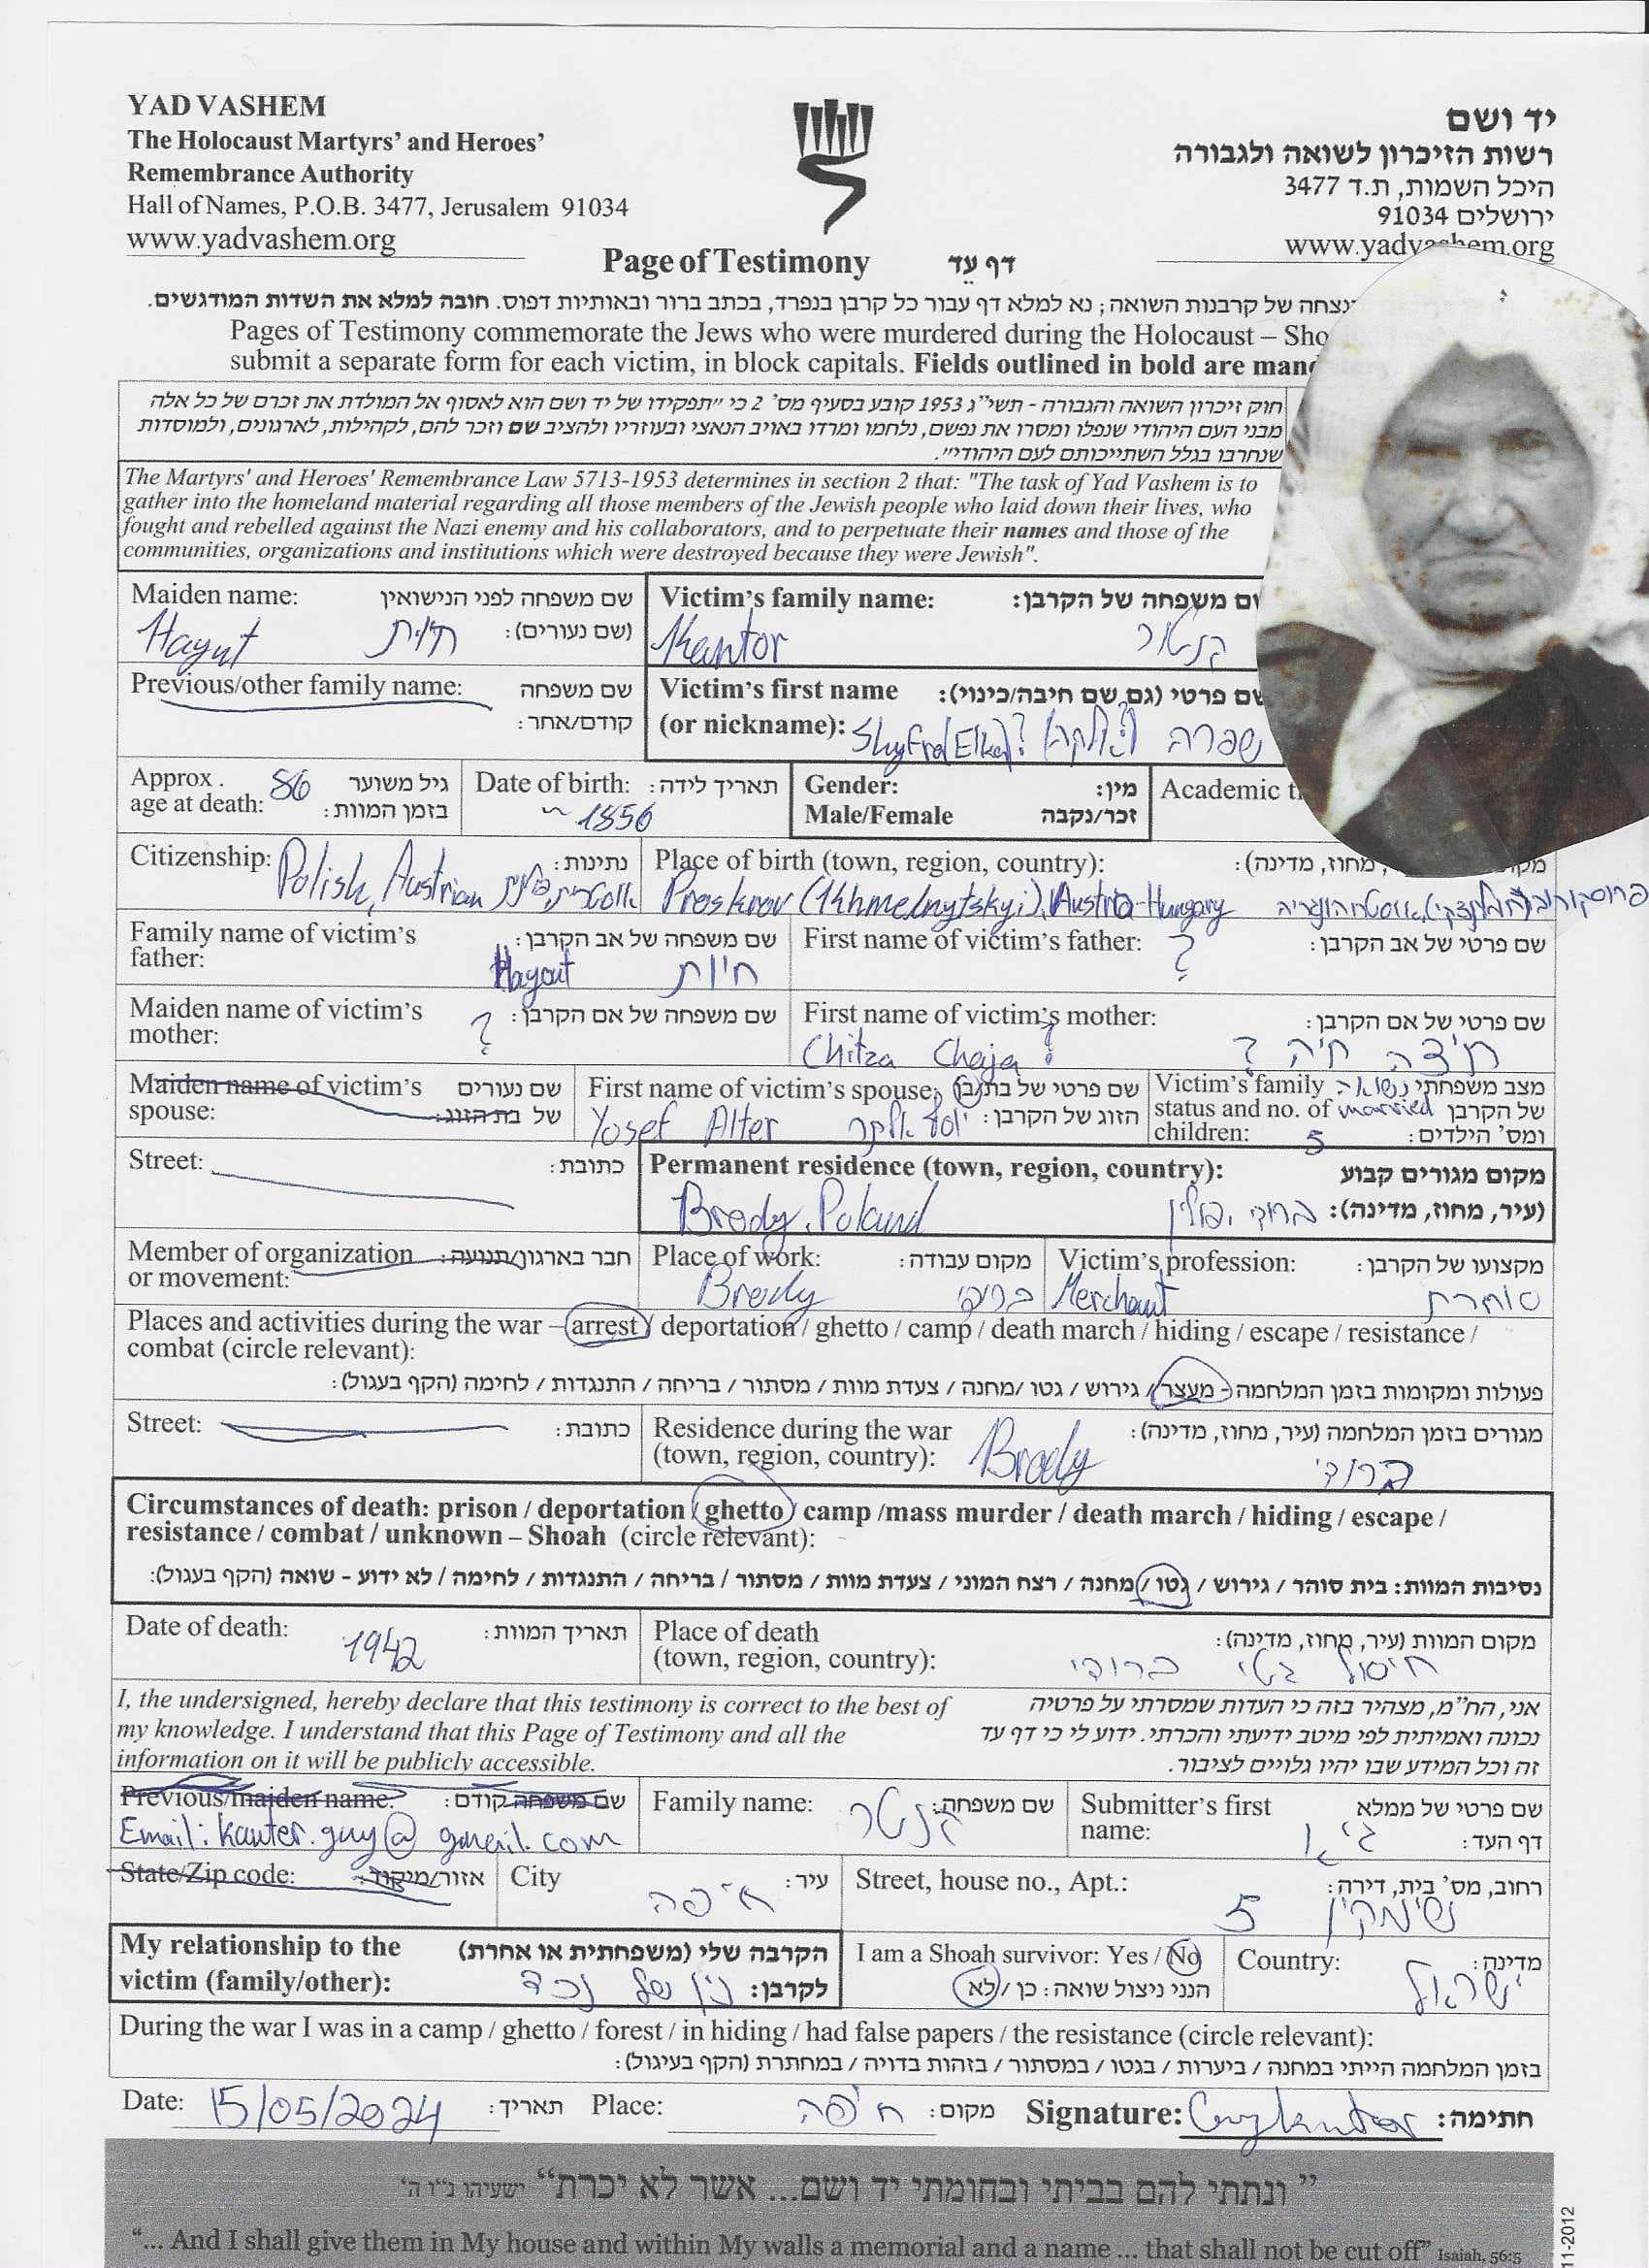 YAD VASHEM
The Holocaust Martyrs' and Heroes'
Remembrance Authority
Hall of Names, P.O.B. 3477, Jerusalem 91034
www.yadvashem.org
יד ושם
רשות הזיכרון לשואה ולגבורה
היכל השמות, ת.ד 3477
ירושלים 91034
www.yadvashem.org
Page of Testimony דף עֵד
נצחה של קרבנות השואה; נא למלא דף עבור כל קרבן בנפרד, בכתב ברור ובאותיות דפוס. חובה למלא את השדות המודגשים.
Pages of Testimony commemorate the Jews who were murdered during the Holocaust – Sho
submit a separate form for each victim, in block capitals. Fields outlined in bold are mand
חוק זיכרון השואה והגבורה - תשי"ג 1953 קובע בסעיף מס' 2 כי "תפקידו של יד ושם הוא לאסוף אל המולדת את זכרם של כל אלה
מבני העם היהודי שנפלו ומסרו את נפשם, נלחמו ומרדו באויב הנאצי ובעוזריו ולהציב שם וזכר להם, לקהילות, לארגונים, ולמוסדות
שנחרבו בגלל השתייכותם לעם היהודי".
The Martyrs' and Heroes' Remembrance Law 5713-1953 determines in section 2 that: "The task of Yad Vashem is to
gather into the homeland material regarding all those members of the Jewish people who laid down their lives, who
fought and rebelled against the Nazi enemy and his collaborators, and to perpetuate their names and those of the
communities, organizations and institutions which were destroyed because they were Jewish".
Maiden name: שם משפחה לפני הנישואין
(שם נעורים):
Hayut חיות
Victim's family name: שם משפחה של הקרבן:
Kantor קנטור
Previous/other family name: שם משפחה
קודם/אחר:
Victim's first name שם פרטי (גם שם חיבה/כינוי):
(or nickname): Shyfra(Elka)? שפרה (אלקה)?
Approx. גיל משוער
age at death: 86 בזמן המוות:
Date of birth: תאריך לידה:
~ 1856
Gender: מין:
Male/Female זכר/נקבה
Academic t
Citizenship: נתינות:
Polish, Austrian
Place of birth (town, region, country): מחוז, מדינה):
Proskrov (Khmelnytskyi), Austria-Hungary
Family name of victim's שם משפחה של אב הקרבן:
father: Hayout חיות
First name of victim's father: שם פרטי של אב הקרבן:
?
Maiden name of victim's שם משפחה של אם הקרבן:
mother: ?
First name of victim's mother: שם פרטי של אם הקרבן:
Chitza Chaja? חיצה חיה ?
Maiden name of victim's שם נעורים
spouse: של בת הזוג:
First name of victim's spouse: שם פרטי של בת/בן
הזוג של הקרבן:
Yosef Alter יוסף אלתר
Victim's family מצב משפחתי נשואה
status and no. of married של הקרבן
children: 5 ומס' הילדים:
Street: כתובת:
Permanent residence (town, region, country): מקום מגורים קבוע
(עיר, מחוז, מדינה):
Brody, Poland ברודי, פולין
Member of organization חבר בארגון/תנועה:
or movement:
Place of work: מקום עבודה:
Brody ברודי
Victim's profession: מקצועו של הקרבן:
Merchant סוחרת
Places and activities during the war – arrest / deportation / ghetto / camp / death march / hiding / escape / resistance /
combat (circle relevant):
פעולות ומקומות בזמן המלחמה - מעצר / גירוש / גטו / מחנה / צעדת מוות / מסתור / בריחה / התנגדות / לחימה (הקף בעגול):
Street: כתובת:
Residence during the war מגורים בזמן המלחמה (עיר, מחוז, מדינה):
(town, region, country): Brody ברודי
Circumstances of death: prison / deportation / ghetto / camp /mass murder / death march / hiding / escape /
resistance / combat / unknown – Shoah (circle relevant):
נסיבות המוות: בית סוהר / גירוש / גטו / מחנה / רצח המוני / צעדת מוות / מסתור / בריחה / התנגדות / לחימה / לא ידוע - שואה (הקף בעגול):
Date of death: תאריך המוות:
1942
Place of death מקום המוות (עיר, מחוז, מדינה):
(town, region, country): חיסול גטו ברודי
I, the undersigned, hereby declare that this testimony is correct to the best of
my knowledge. I understand that this Page of Testimony and all the
information on it will be publicly accessible.
אני, הח"מ, מצהיר בזה כי העדות שמסרתי על פרטיה
נכונה ואמיתית לפי מיטב ידיעתי והכרתי. ידוע לי כי דף עד
זה וכל המידע שבו יהיו גלויים לציבור.
Previous/maiden name: שם משפחה קודם:
Email: kanter.guy@gmail.com
Family name: שם משפחה:
קנטור
Submitter's first שם פרטי של ממלא
name: דף העד:
גיא
State/Zip code: אזור/מיקוד:
City עיר:
חיפה
Street, house no., Apt.: רחוב, מס' בית, דירה:
5
My relationship to the הקרבה שלי (משפחתית או אחרת)
victim (family/other): לקרבן: נין של נכד
I am a Shoah survivor: Yes / No
הנני ניצול שואה: כן / לא
Country: מדינה:
ישראל
During the war I was in a camp / ghetto / forest / in hiding / had false papers / the resistance (circle relevant):
בזמן המלחמה הייתי במחנה / ביערות / בגטו / במסתור / בזהות בדויה / במחתרת (הקף בעיגול):
Date: 15/05/2024 תאריך: Place: חיפה מקום: Signature: Guy kantor חתימה:
"ונתתי להם בביתי ובחומתי יד ושם... אשר לא יכרת" ישעיהו נ"ו ה'
"... And I shall give them in My house and within My walls a memorial and a name ... that shall not be cut off" Isaiah, 56:5
11-2012